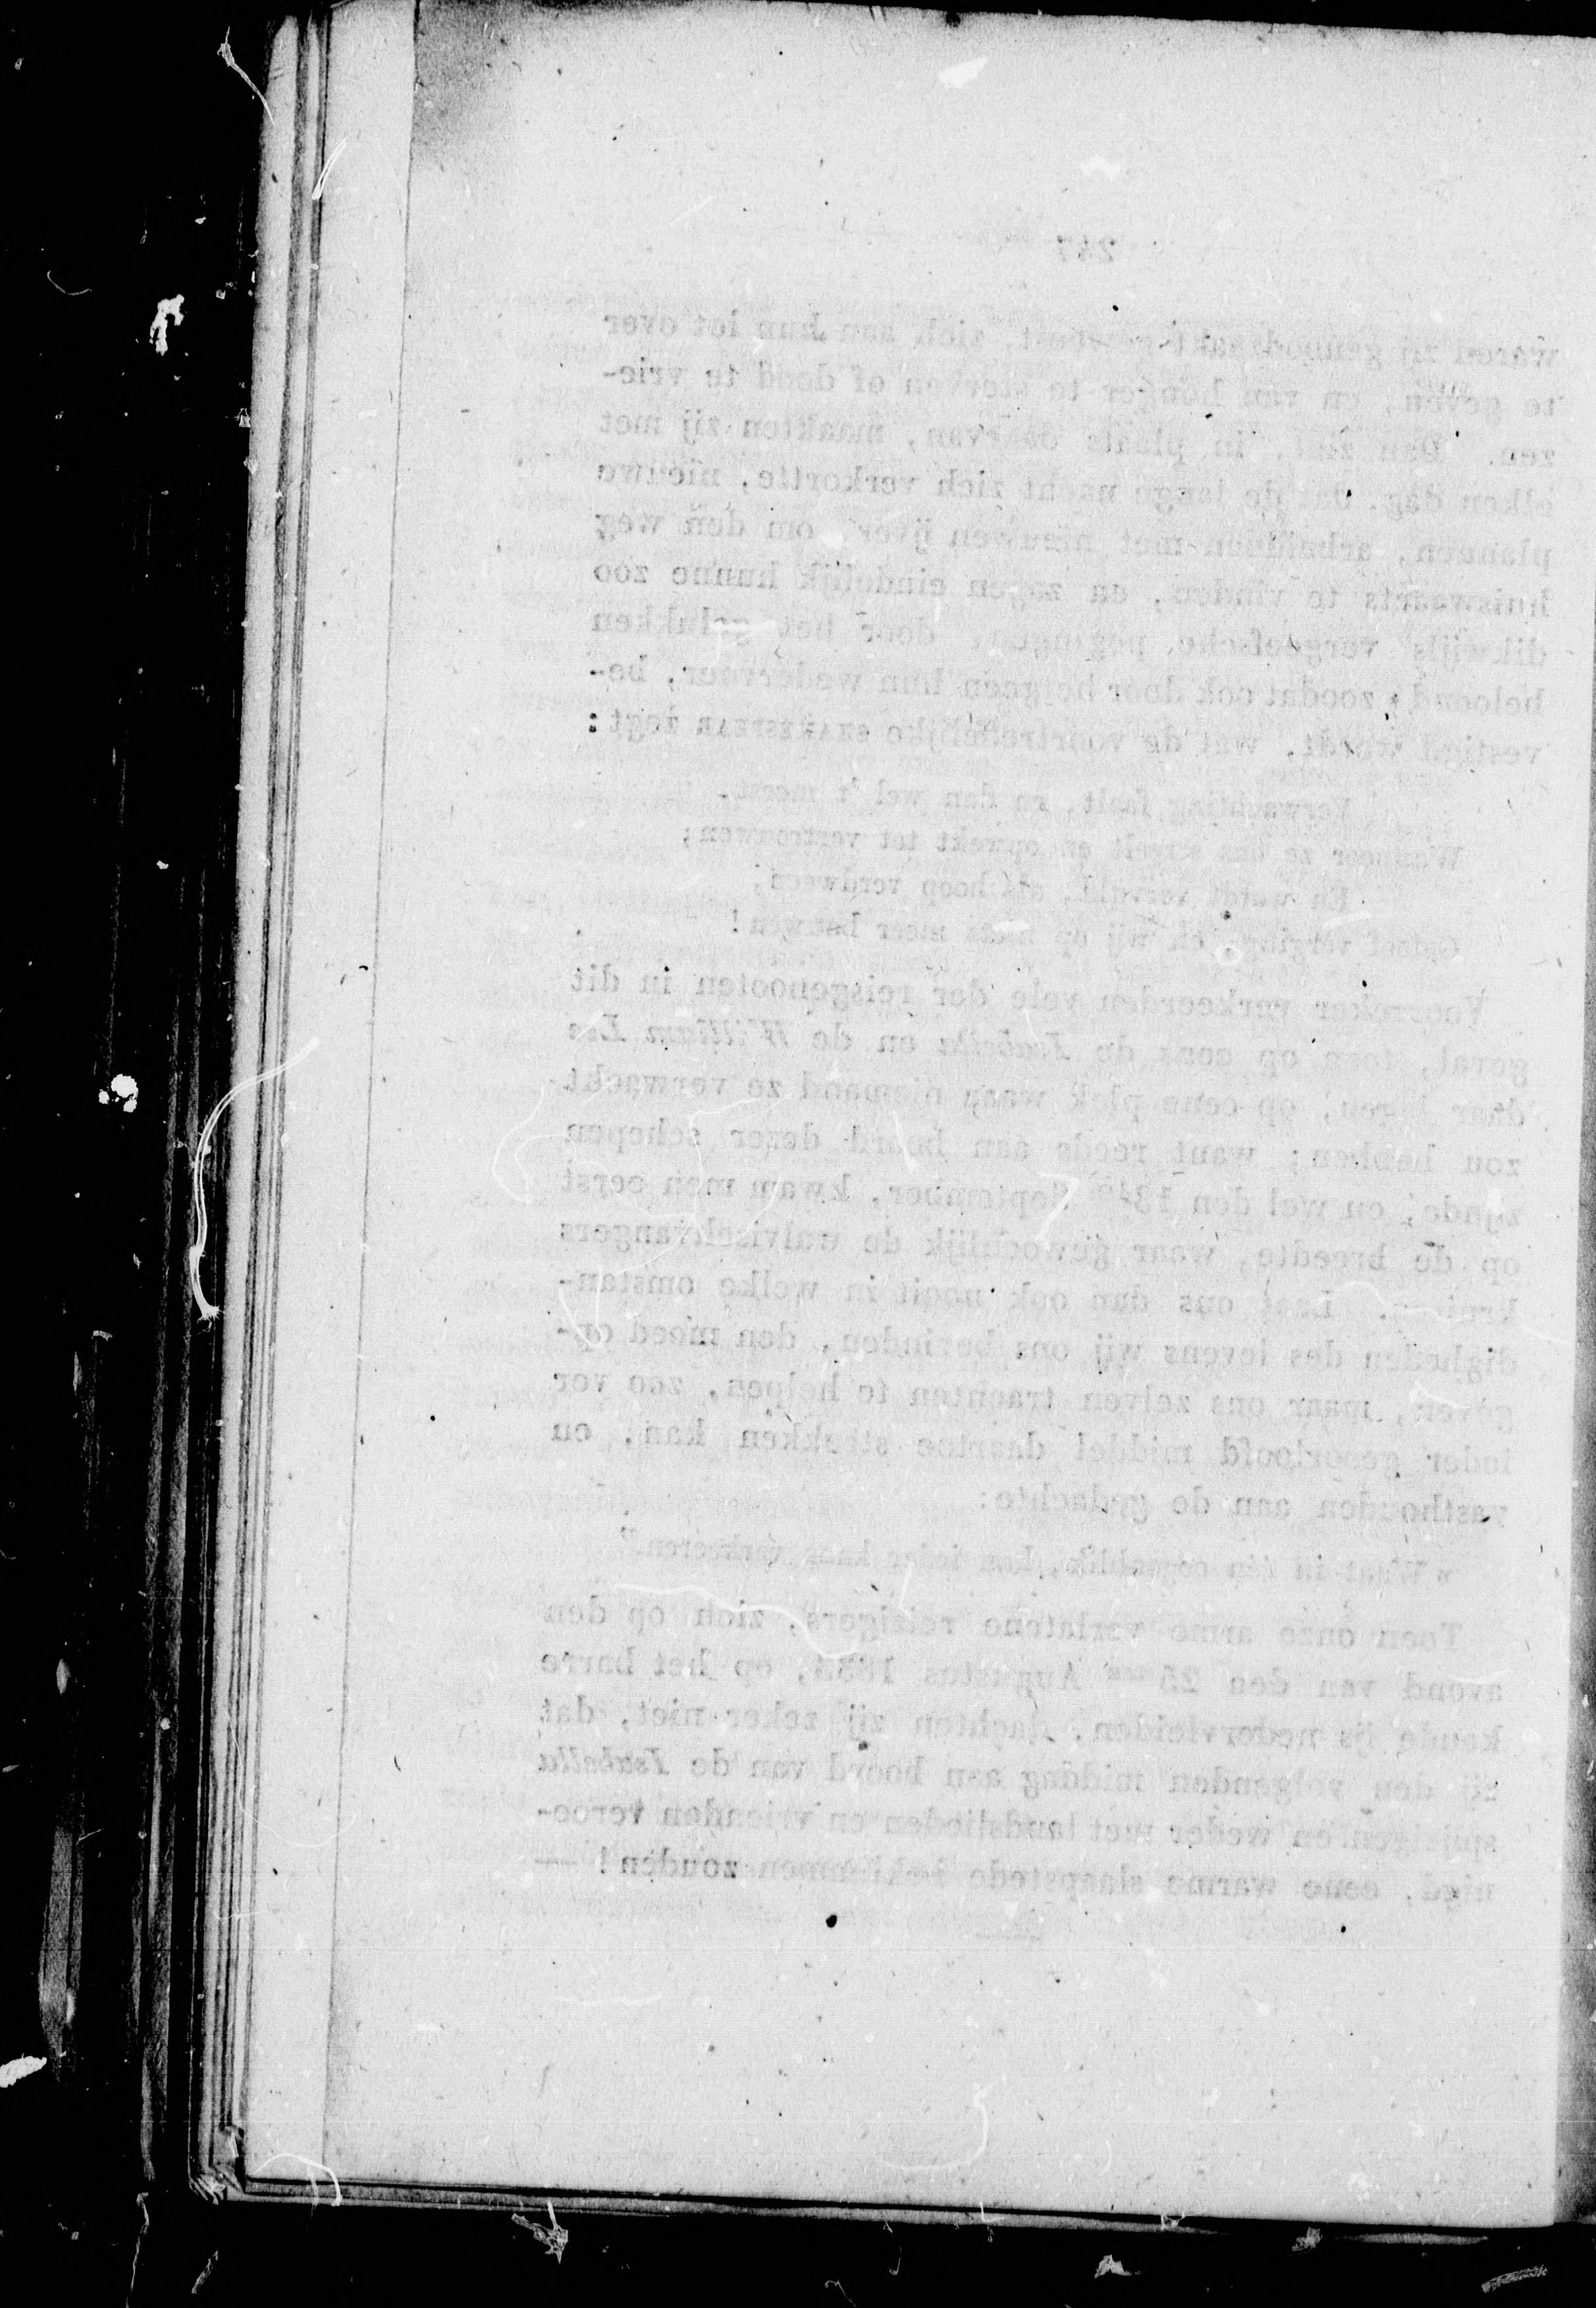 247
waren zij genoodzaakt geweest, zich aan hun lot over
te geven, en van honger te sterven of dood te vrie-
zen. Dan ziet, in plaats daarvan, maakten zij met
elken dag, dat de lange nacht zich verkortte, nieuwe
plannen, arbeidden met nieuwen ijver, om den weg
huiswaarts te vinden, en zagen eindelijk hunne zoo
dikwijls vergeefsche pogingen door het gelukken
beloond; zoodat ook door hetgeen hun wedervoer, be-
vestigd wordt, wat de voortreffelijke SHAKESPEAR zegt:
Verwachting faalt, en dan wel 't meest,
Wanneer ze ons streelt en opwekt tot vertrouwen;
En wordt vervuld, als hoop verdween,
verging, en wij op niets meer bouwen!
Voorzeker verkeerden vele der reisgenooten in dit
geval, toen op eens de Isabella en de William Lee
daar lagen, op eene plek waar niemand ze verwacht
zou hebben; want reeds aan boord dezer schepen
zijnde, en wel den 13den September, kwam men eerst
op de breedte, waar gewoonlijk de walvischvangers
kruisen. Laat ons dan ook nooit in welke omstan-
digheden des levens wij ons bevinden, den moed op-
geven, maar ons zelven trachten te helpen, zoo ver
ieder geoorloofd middel daartoe strekken kan, en
vasthouden aan de gedachte:
» Want in één oogenblik, kan ieder kans verkeeren."
Toen onze arme verlatene reizigers, zich op den
avond van den 25sten Augustus 1833, op het barre
koude ijs nedervleiden, dachten zij zeker niet, dat
zij den volgenden middag aan boord van de Isabella
spijzigen en weder met landslieden en vrienden veree-
nigd, eene warme slaapstede bekommen zouden! —